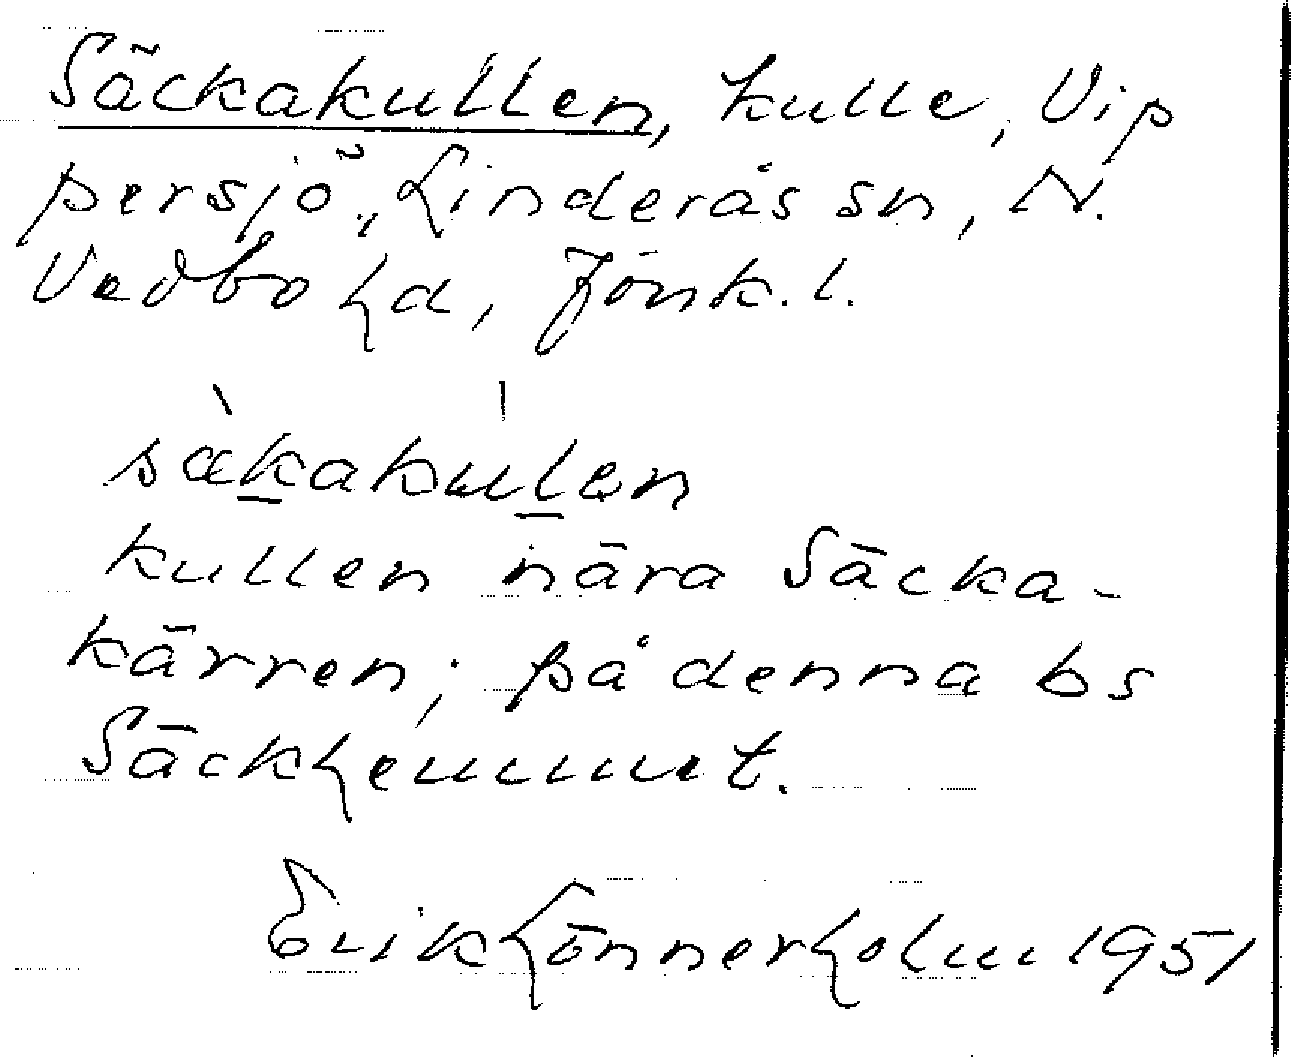 Säckakullen, kulle, Vip
persjö, Linderås sn, N.
Vedbo hd, Jönk. l.
sàkakulen
kullen nära Säcka-
kärren; på denna bs
Säckhemmet.
Erik Lönnerholm 1951